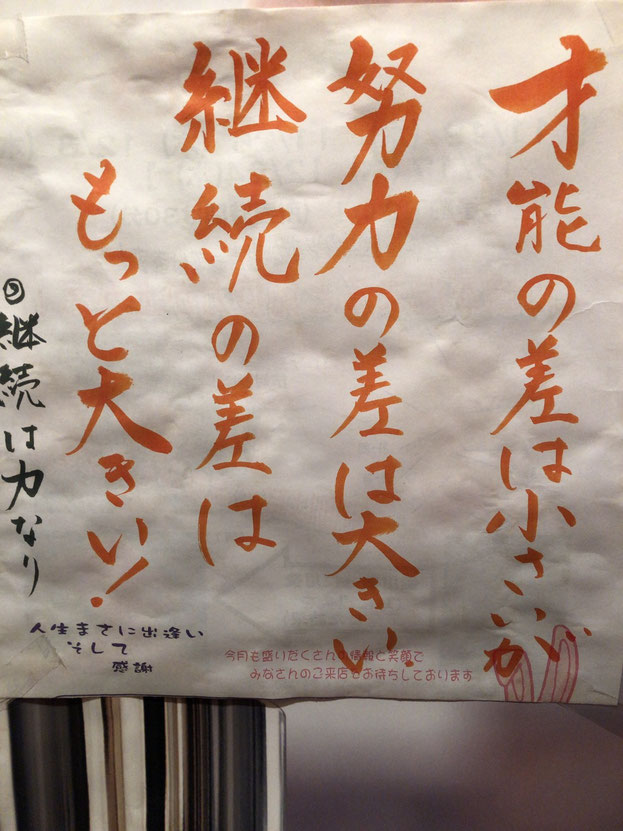 才能の差は小さいが
努力の差は大きい.
継続の差は
もっと大きい!
◎継続は力なり
人生まさに出逢い
そして
感謝
今月も盛りだくさんの情報と笑顔で
みなさんのご来店をお待ちしております